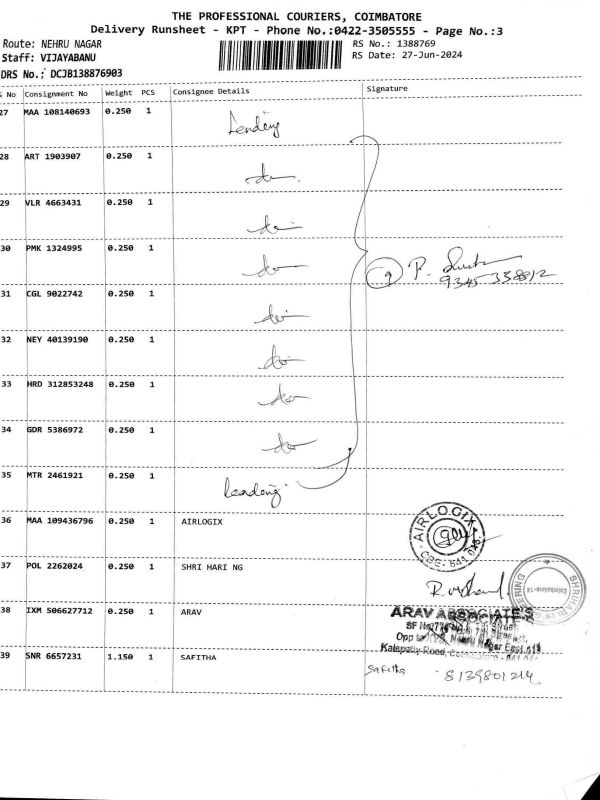 THE PROFESSIONAL COURIERS, COIMBATORE
Delivery Runsheet - KPT - Phone No.:0422-3505555 - Page No.:3
Route: NEHRU NAGAR RS No.: 1388769
Staff: VIJAYABANU RS Date: 27-Jun-2024
DRS No.: DCJB138876903
S No Consignment No Weight PCS Consignee Details Signature
27 MAA 108140693 0.250 1
28 ART 1903907 0.250 1 do
29 VLR 4663431 0.250 1 do
30 PMK 1324995 0.250 1 do
9 R.
9345338812
31 CGL 9022742 0.250 1 do
32 NEY 40139190 0.250 1 do
33 HRD 312853248 0.250 1 do
34 GDR 5386972 0.250 1 do
35 MTR 2461921 0.250 1
36 MAA 109436796 0.250 1 AIRLOGIX
AIRLOGIX
CBE - 641 014
37 POL 2262024 0.250 1 SHRI HARI NG
38 IXM 506627712 0.250 1 ARAV
ARAV ASSOCIATE'S
SF No
Opp to
Kalapatty Road, Coimbatore - 641 014
39 SNR 6657231 1.150 1 SAFITHA
Safitha 8139801214